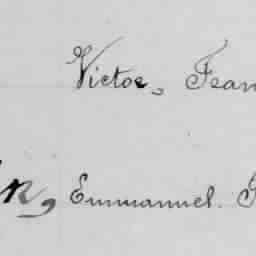 Victor, Jean
n, Emmanuel.